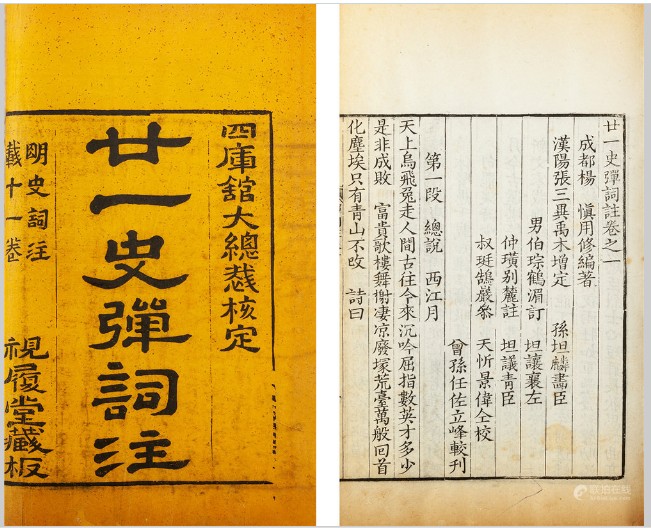 四庫舘大總裁核定
廿一史彈詞注
明史詞注
載十一卷
視履堂藏板
廿一史彈詞註卷之一
成都楊 慎用修編著
漢陽張三異禹木增定 孫坦麟書臣
男伯琮鶴湄訂 坦讓襄左
仲璜別麓註 坦議青臣
叔珽鵠巖叅 天忻景偉仝校
曾孫任佐立峰較刊
第一段 總說 西江月
天上烏飛兔走人間古往今來沉吟屈指數英才多少
是非成敗 富貴歌樓舞榭凄凉廢塚荒臺萬般回首
化塵埃只有青山不改 詩曰